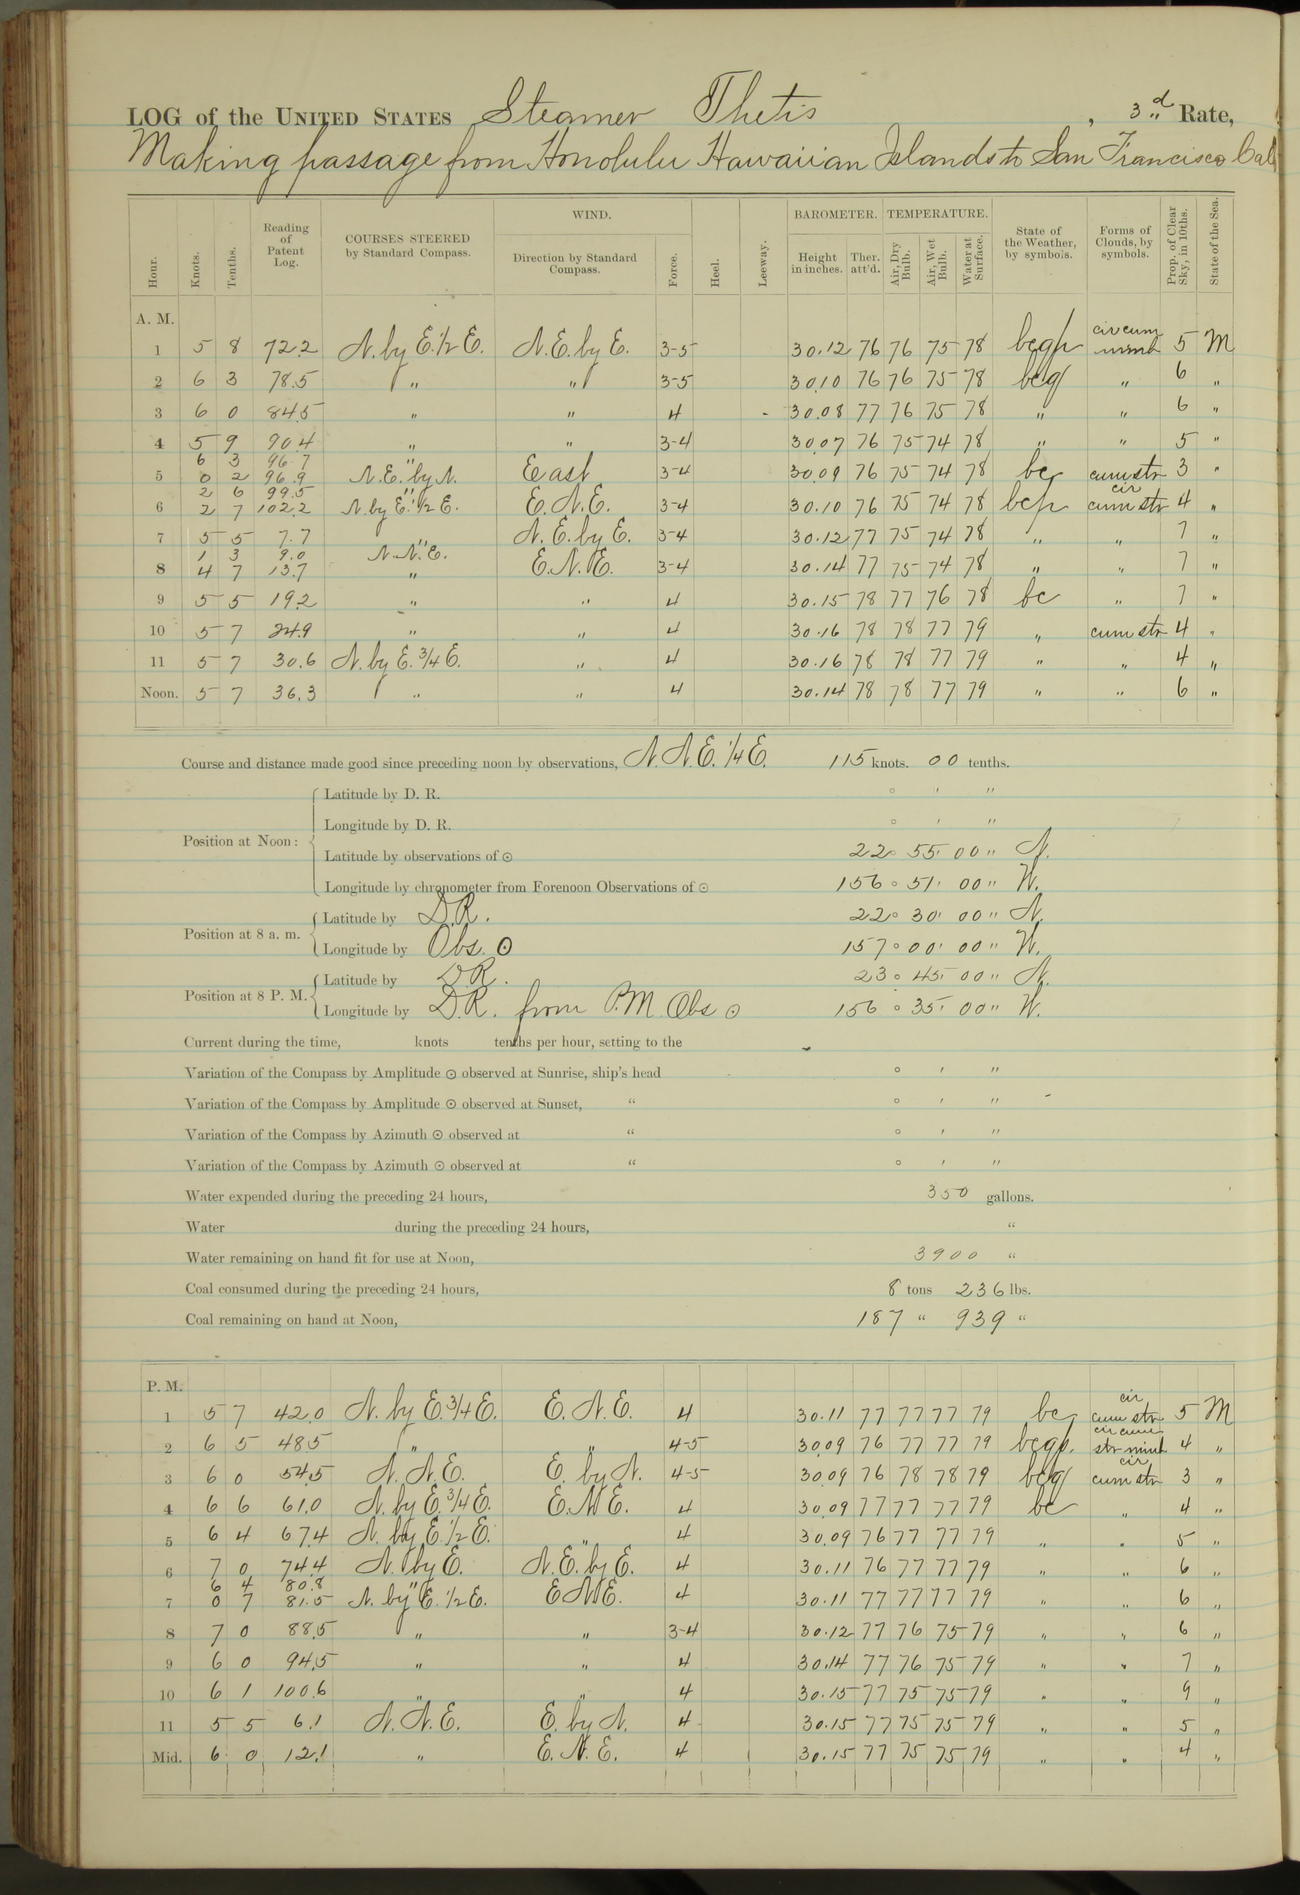 LOG of the UNITED STATES Steamer Thetis , 3d Rate,
Making passage from Honolulu Hawaiian Islands to San Francisco Cal
Hour. Knots. Tenths. Reading of Patent Log. COURSES STEERED by Standard Compass. WIND. Direction by Standard Compass. Force. Heel. Leeway. BAROMETER. Height in inches. Ther. att'd. TEMPERATURE. Air, Dry Bulb. Air, Wet Bulb. Water at Surface. State of the Weather, by symbols. Forms of Clouds, by symbols. Prop. of Clear Sky, in 10ths. State of the Sea.
A. M.
1 5 8 72.2 N. by E. 1/2 E. N. E. by E. 3-5 30.12 76 76 75 78 bcqp cir cum nimb 5 M
2 6 3 78.5 " " 3-5 30.10 76 76 75 78 bcq " 6 "
3 6 0 84.5 " " 4 30.08 77 76 75 78 " " 6 "
4 5 9 90.4 " " 3-4 30.07 76 75 74 78 " " 5 "
6 3 96.7 "
5 0 2 96.9 N. E. by N. East 3-4 30.09 76 75 74 78 bc cum str 3 "
2 6 99.5 "
6 2 7 102.2 N. by E. 1/2 E. E. N. E. 3-4 30.10 76 75 74 78 bcp cir cum str 4 "
7 5 5 7.7 " N. E. by E. 3-4 30.12 77 75 74 78 " " 7 "
1 3 9.0 N. N. E.
8 4 7 13.7 " E. N. E. 3-4 30.14 77 75 74 78 " " 7 "
9 5 5 19.2 " " 4 30.15 78 77 76 78 bc " 7 "
10 5 7 24.9 " " 4 30.16 78 78 77 79 " cum str 4 "
11 5 7 30.6 N. by E. 3/4 E. " 4 30.16 78 78 77 79 " " 4 "
Noon. 5 7 36.3 " " 4 30.14 78 78 77 79 " " 6 "
Course and distance made good since preceding noon by observations, N. N. E. 1/4 E. 115 knots. 00 tenths.
Position at Noon:
Latitude by D. R. ° ' "
Longitude by D. R. ° ' "
Latitude by observations of ⊙ 22° 55' 00" N.
Longitude by chronometer from Forenoon Observations of ⊙ 156° 51' 00" W.
Position at 8 a. m.
Latitude by D.R. 22° 30' 00" N.
Longitude by Obs. ⊙ 157° 00' 00" W.
Position at 8 P. M.
Latitude by D.R. 23° 45' 00" N.
Longitude by D.R. from P.M. Obs ⊙ 156° 35' 00" W.
Current during the time, knots tenths per hour, setting to the
Variation of the Compass by Amplitude ⊙ observed at Sunrise, ship's head ° ' "
Variation of the Compass by Amplitude ⊙ observed at Sunset, " ° ' "
Variation of the Compass by Azimuth ⊙ observed at " ° ' "
Variation of the Compass by Azimuth ⊙ observed at " ° ' "
Water expended during the preceding 24 hours, 350 gallons.
Water during the preceding 24 hours, "
Water remaining on hand fit for use at Noon, 3900 "
Coal consumed during the preceding 24 hours, 8 tons 236 lbs.
Coal remaining on hand at Noon, 187 " 939 "
P. M.
1 5 7 42.0 N. by E. 3/4 E. E. N. E. 4 30.11 77 77 77 79 bc cir cum str 5 M
2 6 5 48.5 " " 4-5 30.09 76 77 77 79 bcqp. cir cum str nimb 4 "
3 6 0 54.5 N. N. E. E. by N. 4-5 30.09 76 78 78 79 bcq cir cum str 3 "
4 6 6 61.0 N. by E. 3/4 E. E. N E. 4 30.09 77 77 77 79 bc " 4 "
5 6 4 67.4 N. by E. 1/2 E. " 4 30.09 76 77 77 79 " " 5 "
6 7 0 74.4 N. by E. N. E. by E. 4 30.11 76 77 77 79 " " 6 "
6 4 80.8 "
7 0 7 81.5 N. by E. 1/2 E. E N E. 4 30.11 77 77 77 79 " " 6 "
8 7 0 88.5 " " 3-4 30.12 77 76 75 79 " " 6 "
9 6 0 94.5 " " 4 30.14 77 76 75 79 " " 7 "
10 6 1 100.6 " " 4 30.15 77 75 75 79 " " 9 "
11 5 5 6.1 N. N. E. E. by N. 4 30.15 77 75 75 79 " " 5 "
Mid. 6 0 12.1 " E. N. E. 4 30.15 77 75 75 79 " " 4 "